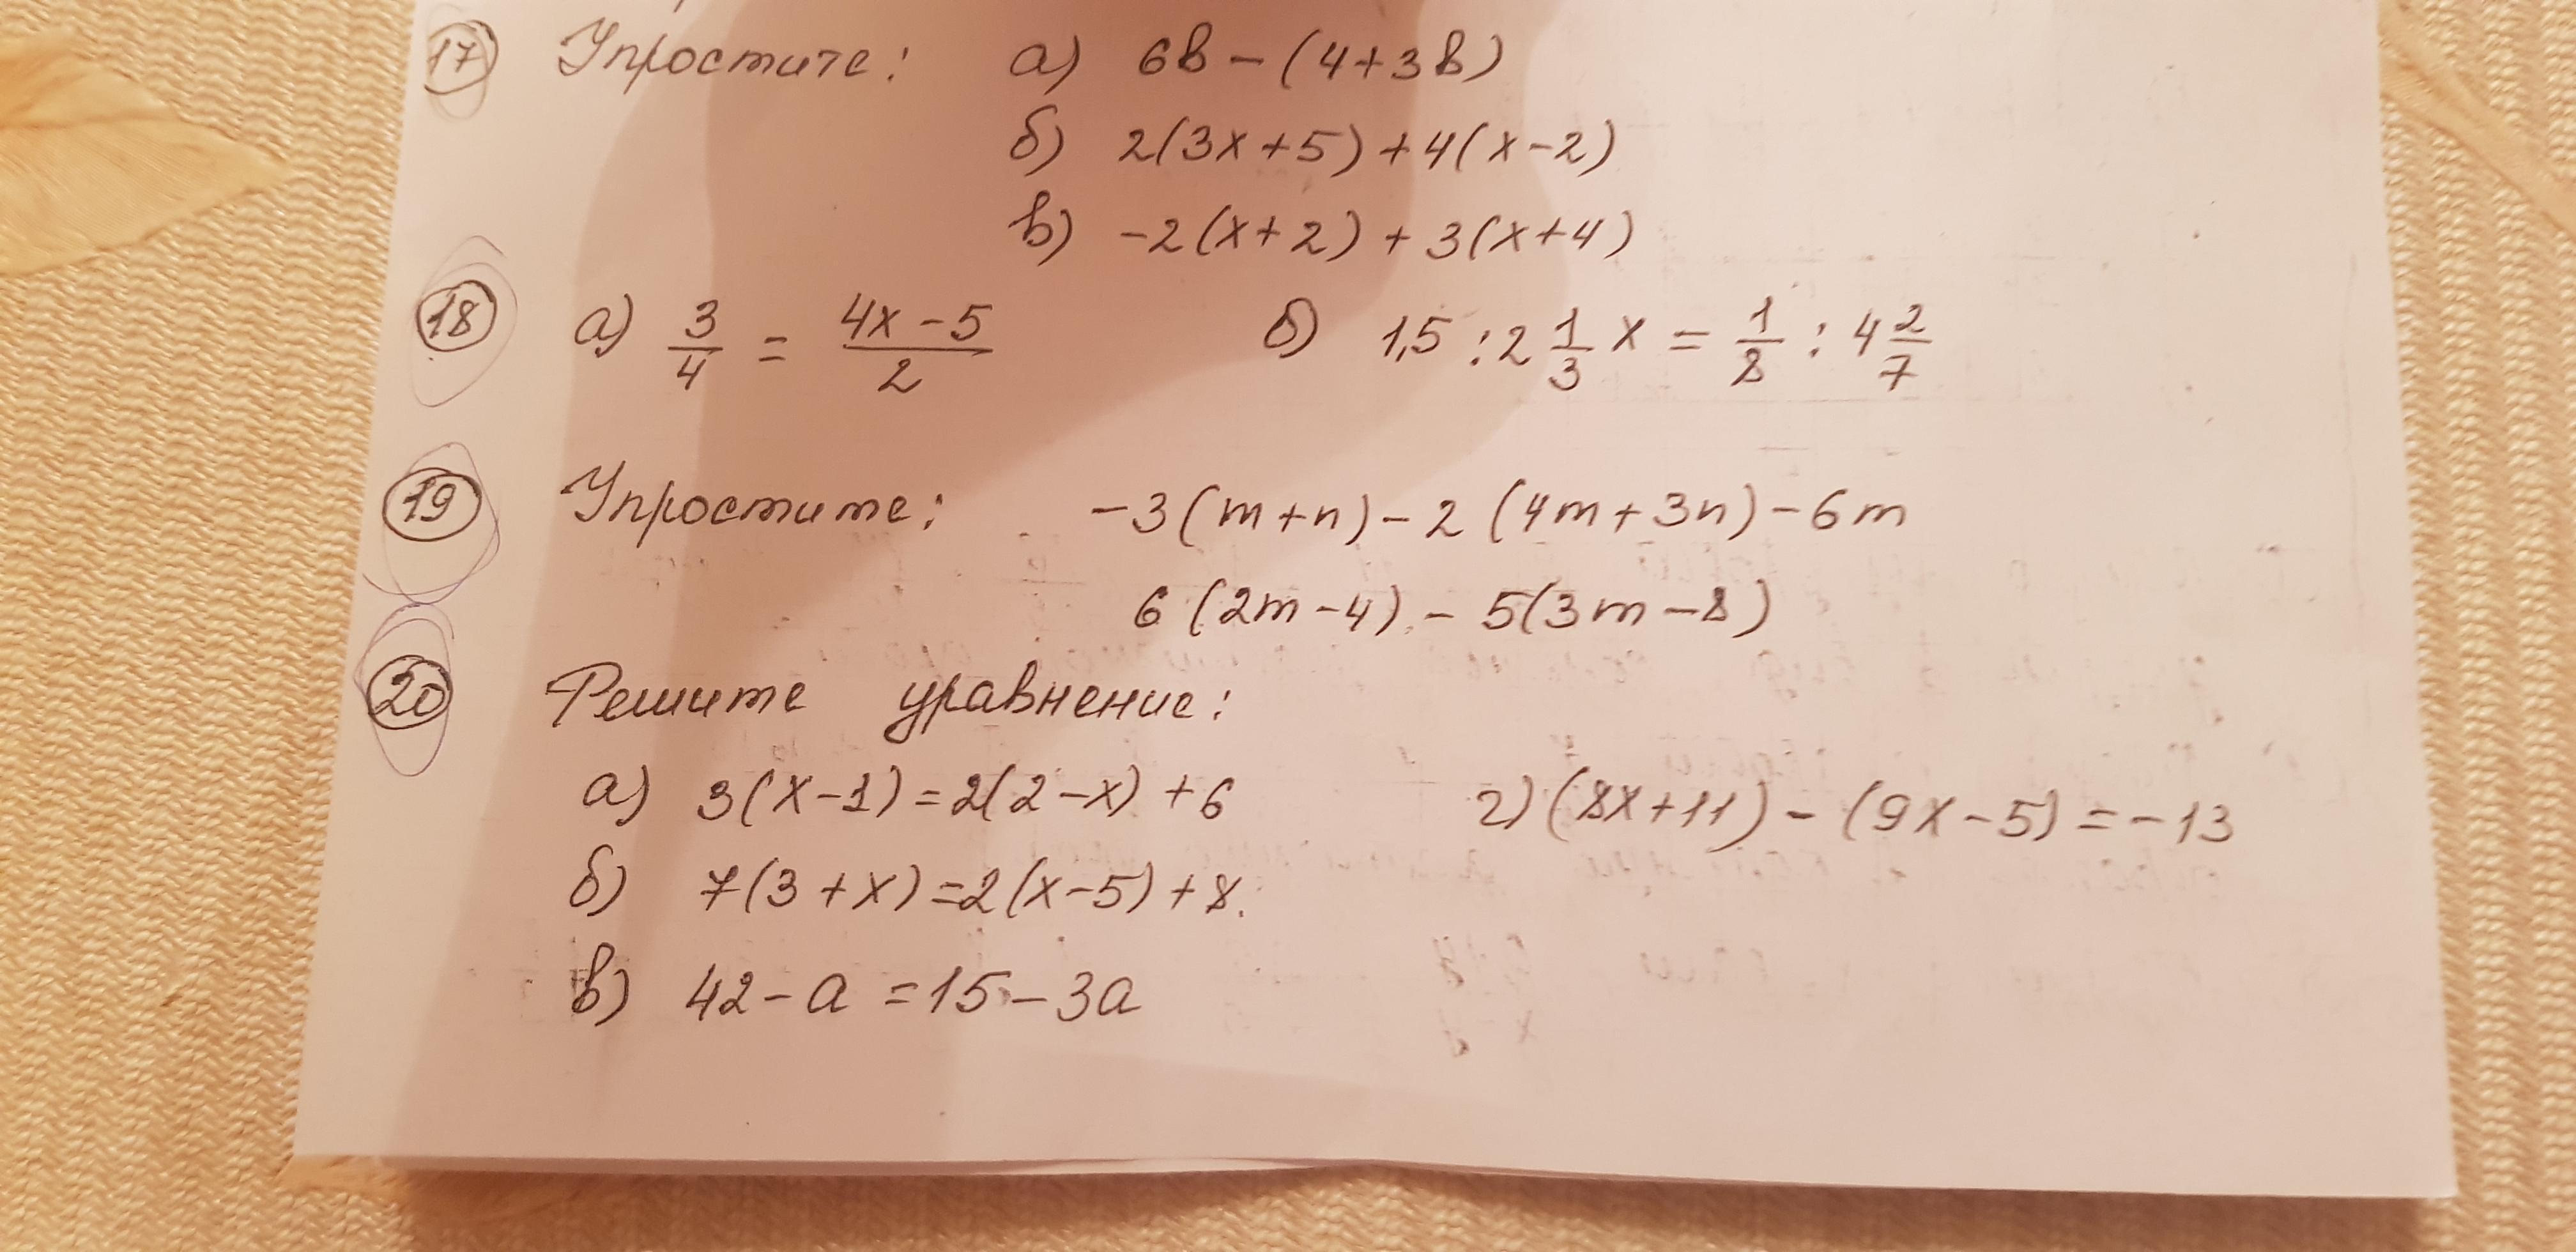 17 Упростите: а) 6в - (4+3в)
б) 2(3х+5)+4(х-2)
в) -2(х+2)+3(х+4)
18 а) 3/4 = (4х-5)/2 б) 1,5 : 2 1/3 х = 1/8 : 4 2/7
19 Упростите: -3(m+n)-2(4m+3n)-6m
6(2m-4)-5(3m-8)
20 Решите уравнение:
а) 3(х-1)=2(2-х)+6 г) (8х+11)-(9х-5)=-13
б) 7(3+х)=2(х-5)+8.
в) 42-а=15-3а